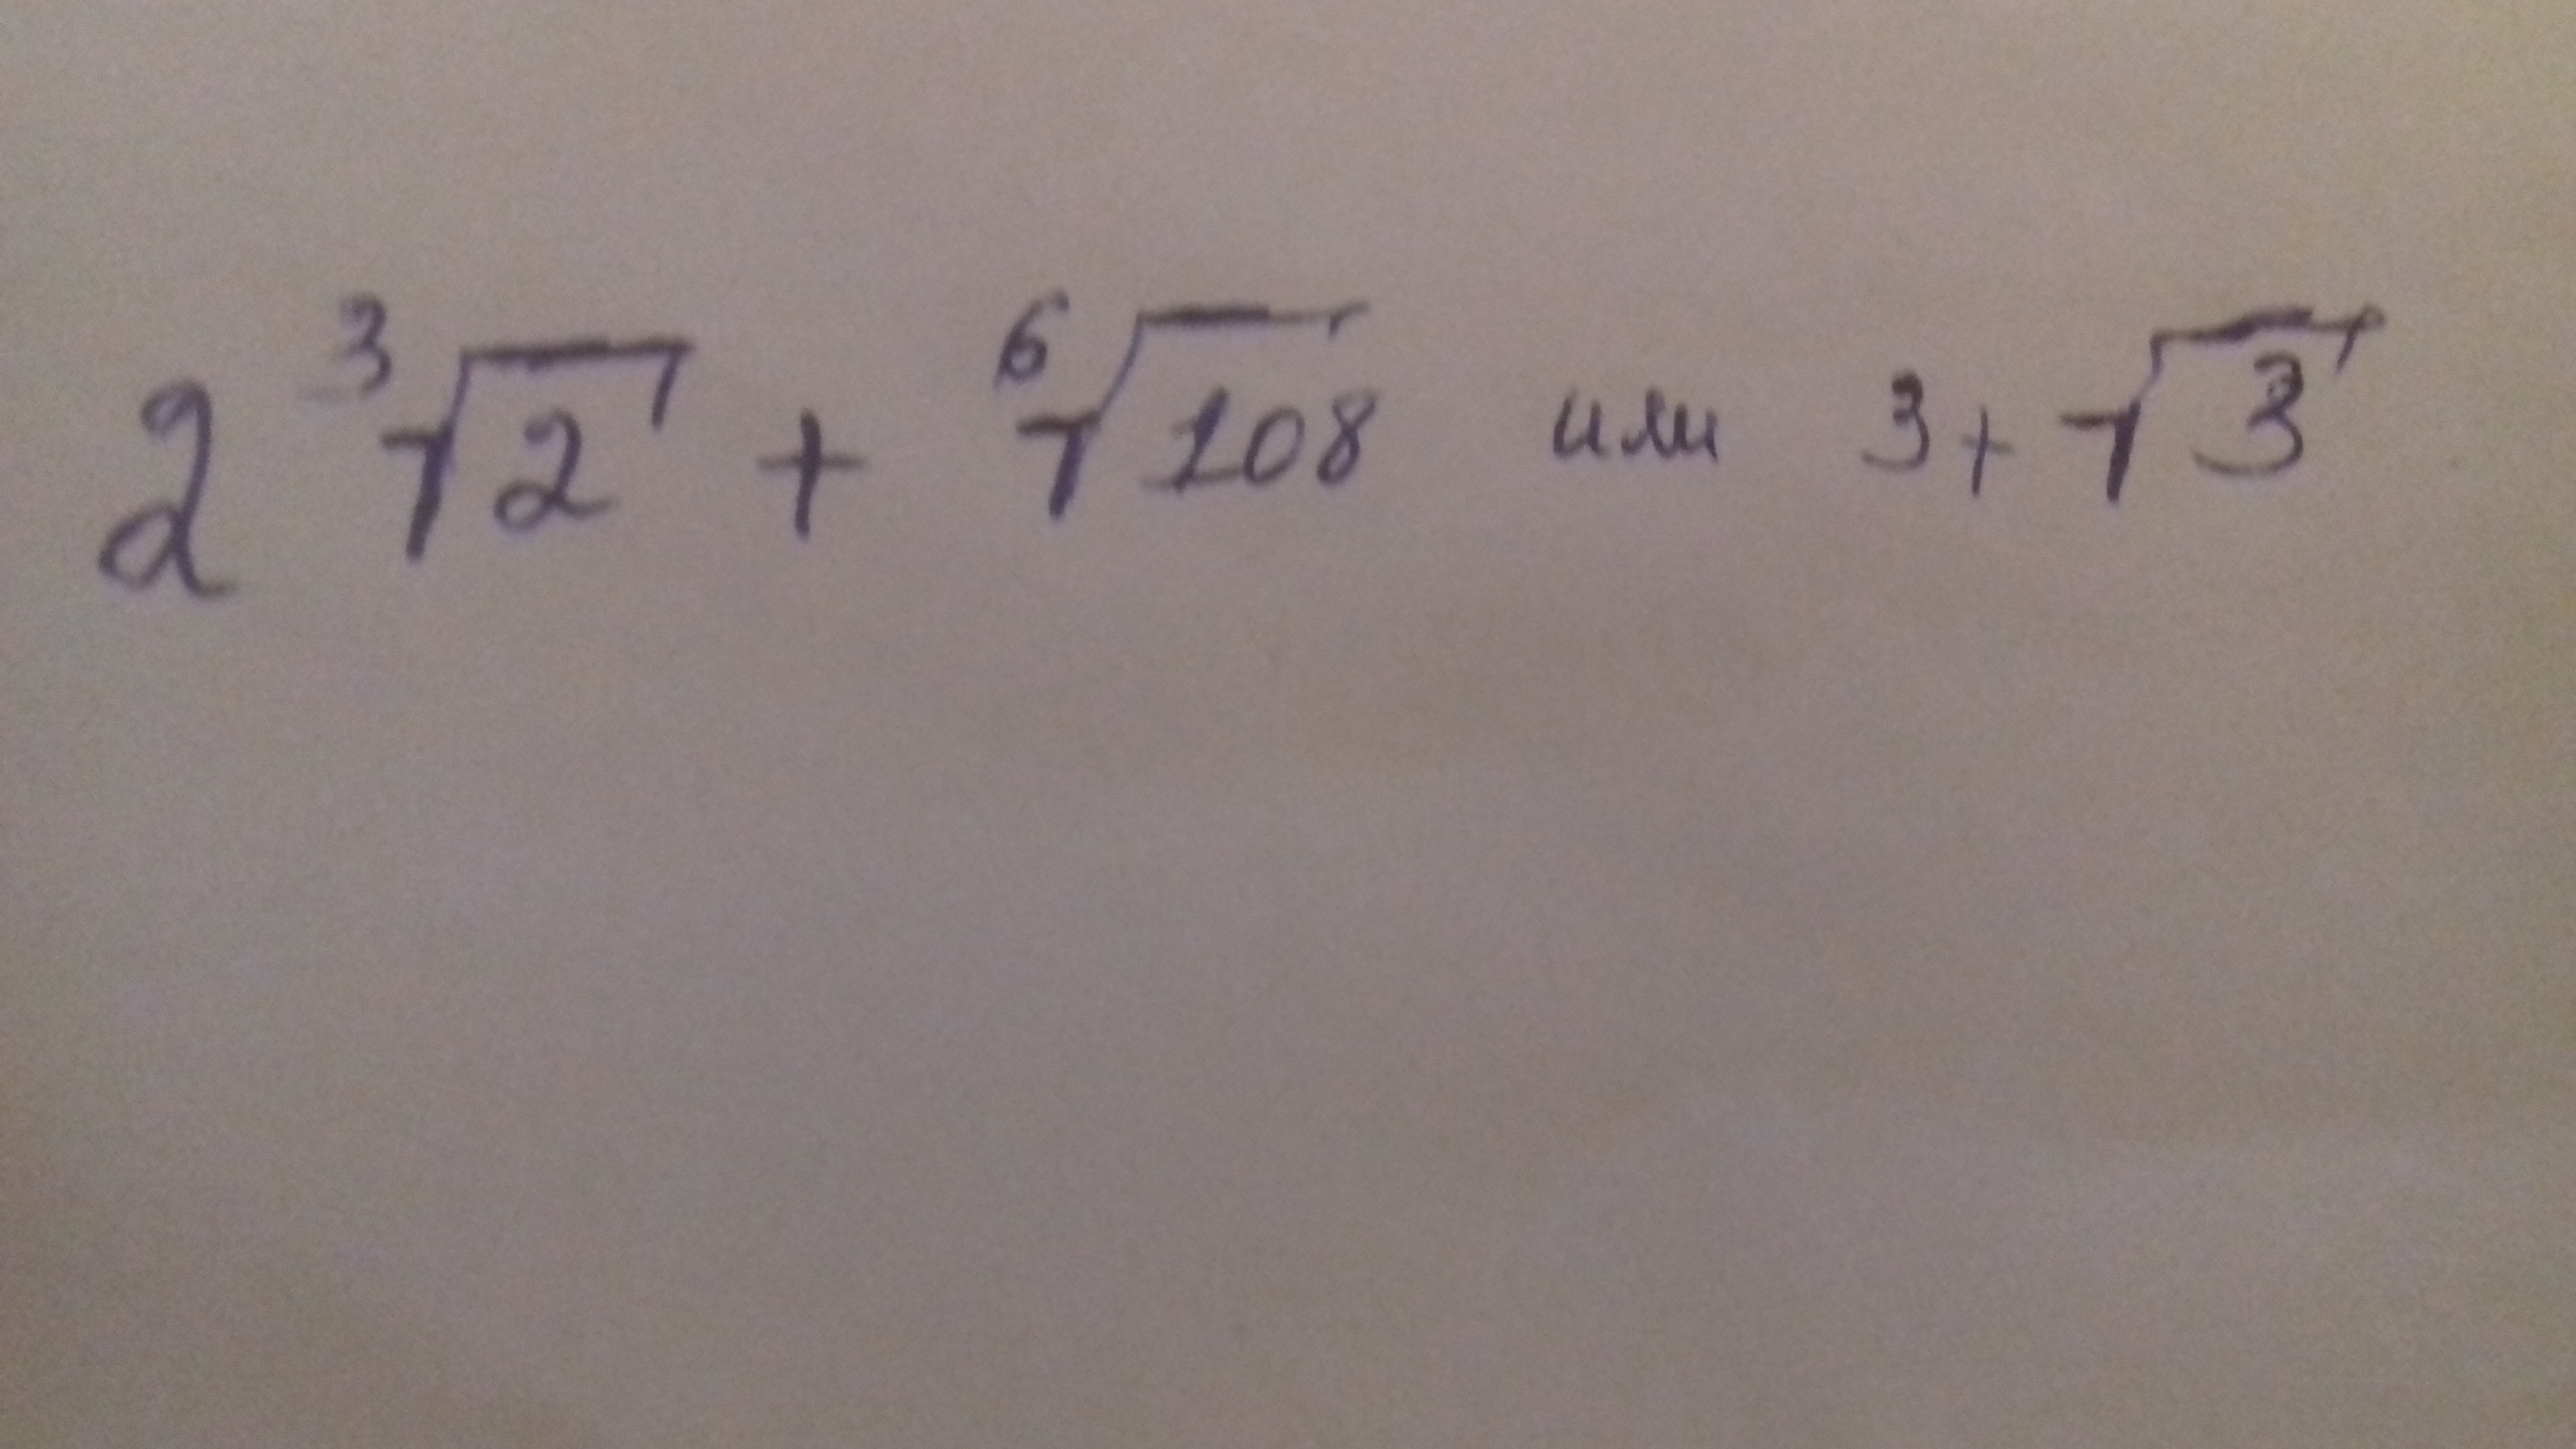 2 ∛2 + ⁶√108 или 3 + √3